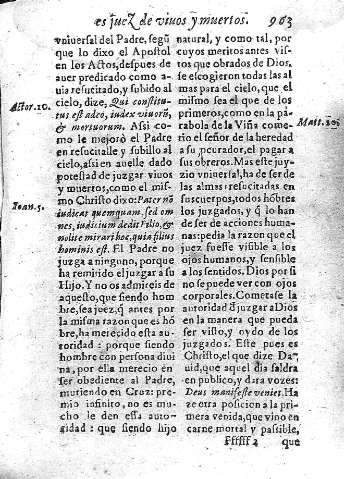 es juez de viuos y muertos. 963
vniuersal del Padre, segũ
que lo dixo el Apostol
en los Actos, despues de
auer predicado como a-
uia resucitado, y subido al
Actor. 10.
cielo, dize, Qui constitu-
tus est a deo, iudex viuorũ,
& mortuorum. Assi co-
mo le mejorò el Padre
en resucitalle y subillo al
cielo, assi en auelle dado
potestad de juzgar viuos
y muertos, como el mis-
mo Christo dixo: Pater nõ
Ioan. 5.
iudicat quemquam, sed om
nes, iudicium dedit Filio, et
nolite mirari hoc, quia filius
hominis est. El Padre no
juzga a ninguno, porque
ha remitido el juzgar a su
Hijo. Y no os admireis de
aquesto, que siendo hom
bre, sea juez, q̃ antes por
la misma razon que es hõ
bre, ha merecido esta au
toridad: porque siendo
hombre con persona diui
na, por ella merecio en
ser obediente al Padre,
muriendo en Cruz: pre-
mio infinito, no es mu-
cho le den esta auto-
ridad: que siendo hijo
natural, y como tal, por
cuyos meritos antes vis-
tos que obrados de Dios,
se escogieron todas las al
mas para el cielo, que el
mismo sea el que de los
primeros, como en la pa-
rabola de la Viña come-
Matt. 20.
rio el señor de la heredad
a su procurador, el pagar a
sus obreros. Mas este juy-
zio vniuersal, ha de ser de
las almas resucitadas en
sus cuerpos, todos hõbres
los juzgados, y q̃ lo han
de ser de acciones huma-
nas: pedia la razon que el
juez fuesse visible a los
ojos humanos, y sensible
a los sentidos. Dios por si
no se puede ver con ojos
corporales. Cometase la
autoridad d̃ juzgar a Dios
en la manera que pueda
ser visto, y oydo de los
juzgados. Este pues es
Christo, el que dize Da-
uid, que aquel dia saldra
en publico, y dara vozes:
Deus manifeste veniet. Ha
ze otra posicion a la pri-
mera venida, que vino en
carne mortal y passible,
ffffff 2 que